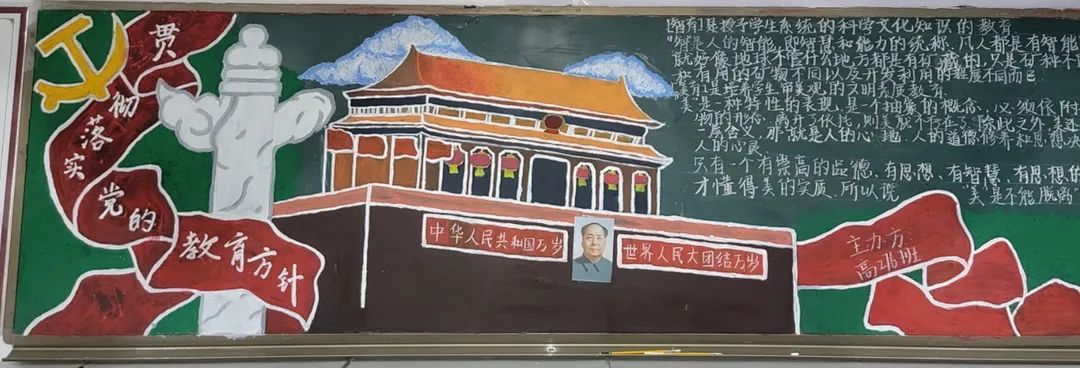 贯彻落实
党的
教育方针
中华人民共和国万岁
世界人民大团结万岁
[智育]是授予学生系统的科学文化知识的教育
"智是人的智能,即智慧和能力的统称,凡人都是有智能
就好像地球不管什么地方都是有矿藏的,只是矿种不同
和有用的矿物不同以及开发利用的程度不同而已.
美育]是培养学生审美观的文明素质教育
美是一种特性的表现,是一个抽象的概念,必须依附
物的形态,离开了依托,则美就不存在了,除此之外,美还
一层含义,那就是人的心地,人的道德修养和思想决
人的心灵
只有一个有崇高的道德,有思想,有智慧,有思想的
才懂得美的实质.所以说"美是不能脱离"
主办方:
高216班